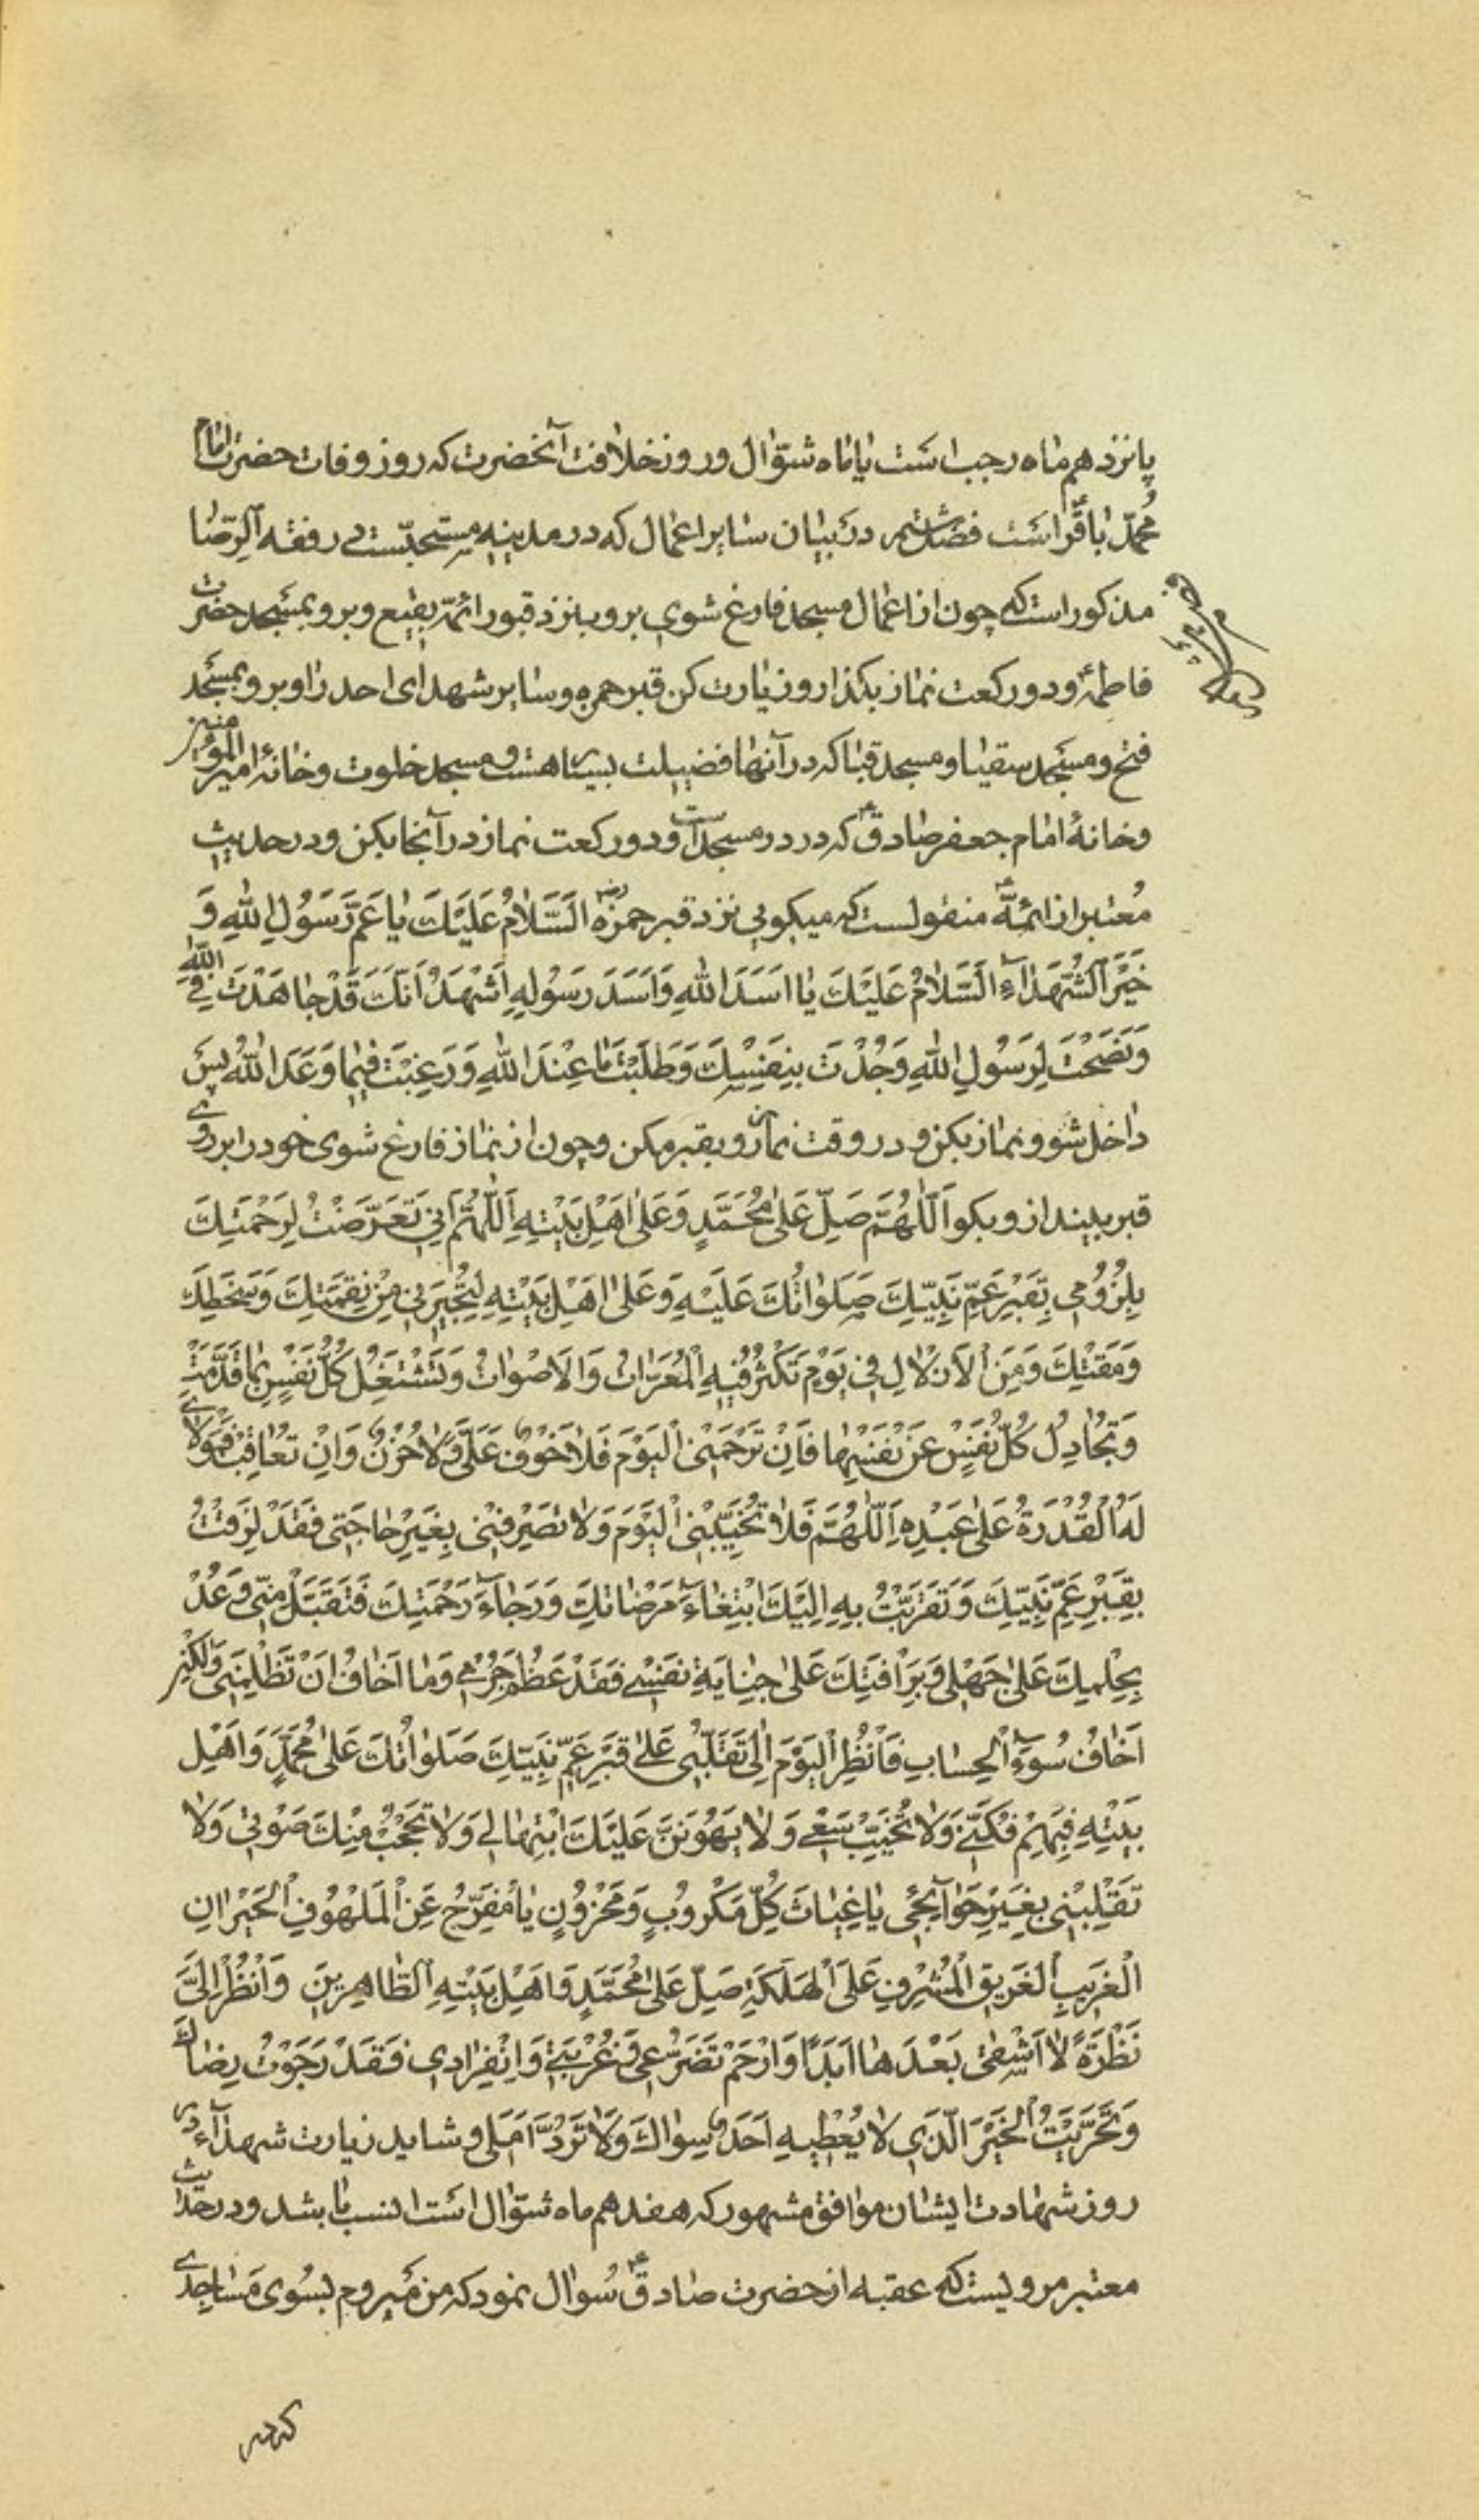 پانزدهم ماه رجب است یا ماه شوّال و روز خلافت آنحضرت که روز وفات حضرت امام
محمّد باقرؑ است فصل ششم در بیان سایر اعمال که در مدینه مستحبّست در فقه الرّضا
مذکور است که چون از اعمال مسجد فارغ شوی برو بنزد قبور ائمّه بقیع و برو بمسجد حضرت
فاطمهؑ و دو رکعت نماز بکذار و زیارت کن قبر حمزه و سایر شهدای احد را و برو بمسجد
فتح و مسجد سقیا و مسجد قبا که در آنها فضیلت بسیار هست و مسجد خلوت و خانهٔ امیر المؤمنین
و خانهٔ امام جعفر صادقؑ که در در مسجد است و دو رکعت نماز در آنجا بکن و در حدیث
مُعتبر از ائمّهؑ منقولست که میکویی نزد قبر حمزه رض اَلسَّلامُ عَلَیْكَ یا عَمَّ رَسُولِ اللهِ وَ
خَیْرَ الشُّهَدآءِ اَلسَّلامُ عَلَیْكَ یا اَسَدَ اللهِ وَاَسَدَ رَسُولِهِ اَشْهَدُ اَنَّكَ قَدْ جاهَدْتَ فِی اللهِ
وَنَصَحْتَ لِرَسُولِ اللهِ وَجُدْتَ بِنَفْسِكَ وَطَلَبْتَ ما عِنْدَ اللهِ وَرَغِبْتَ فِیما وَعَدَ اللهُ پس
داخل شو و نماز بکن و در وقت نماز رو بقبر مکن و چون از نماز فارغ شوی خود را بر روی
قبر بینداز و بکو اَللّهُمَّ صَلِّ عَلی مُحَمَّدٍ وَعَلی اَهْلِ بَیْتِهِ اَللّهُمَّ اِنّی تَعَرَّضْتُ لِرَحْمَتِكَ
بِلُزُومی بِقَبْرِ عَمِّ نَبِیِّكَ صَلَواتُكَ عَلَیْهِ وَعَلی اَهْلِ بَیْتِهِ لِیُجیرَنی مِنْ نِقْمَتِكَ وَسَخَطِكَ
وَمَقْتِكَ وَمِنَ الاَزْلالِ فی یَوْمٍ تَکْثُرُ فیهِ الْمُعَرّاتُ وَالاَصْواتُ وَتَشْتَغِلُ کُلُّ نَفْسٍ بِما قَدَّمَتْ
وَتُجادِلُ کُلُّ نَفْسٍ عَنْ نَفْسِها فَاِنْ تَرْحَمْنی الْیَوْمَ فَلا خَوْفٌ عَلَیَّ وَلا حُزْنٌ وَاِنْ تُعاقِبْ فَمَوْلایَ
لَهُ الْقُدْرَةُ عَلی عَبْدِهِ اَللّهُمَّ فَلا تُخَیِّبْنی الْیَوْمَ وَلا تَصْرِفْنی بِغَیْرِ حاجَتی فَقَدْ لَزِقْتُ
بِقَبْرِ عَمِّ نَبِیِّكَ وَتَقَرَّبْتُ بِهِ اِلَیْكَ ابْتِغآءَ مَرْضاتِكَ وَرَجآءَ رَحْمَتِكَ فَتَقَبَّلْ مِنّی وَعُدْ
بِحِلْمِكَ عَلی جَهْلی وَبِرَاْفَتِكَ عَلی جِنایَةِ نَفْسی فَقَدْ عَظُمَ جُرْمی وَما اَخافُ اَنْ تَظْلِمَنی وَلکِنْ
اَخافُ سُوءَ الْحِسابِ فَانْظُرِ الْیَوْمَ اِلی تَقَلُّبی عَلی قَبْرِ عَمِّ نَبِیِّكَ صَلَواتُكَ عَلی مُحَمَّدٍ وَاَهْلِ
بَیْتِهِ فَبِهِمْ فُکَّنی وَلا تُخَیِّبْ سَعْیی وَلا یَهُونَنَّ عَلَیْكَ ابْتِهالی وَلا تَحْجُبْ مِنْكَ صَوْتی وَلا
تَقْلِبْنی بِغَیْرِ حَوآئِجی یا غِیاثَ کُلِّ مَکْرُوبٍ وَمَحْزُونٍ یا مُفَرِّجُ عَنِ الْمَلْهُوفِ الْحَیْرانِ
الْغَریبِ الْغَریقِ الْمُشْرِفِ عَلَی الْهَلَکَةِ صَلِّ عَلی مُحَمَّدٍ وَاَهْلِ بَیْتِهِ الطّاهِرینَ وَانْظُرْ اِلَیَّ
نَظْرَةً لا اَشْقی بَعْدَها اَبَدًا وَارْحَمْ تَضَرُّعی وَغُرْبَتی وَانْفِرادی فَقَدْ رَجَوْتُ رِضاكَ
وَتَحَرَّیْتُ الْخَیْرَ الَّذی لا یُعْطیهِ اَحَدٌ سِواكَ وَلا تَرُدَّ اَمَلی و شاید زیارت شهدآء در
روز شهادت ایشان موافق مشهور که هفدهم ماه شوّال است انسب باشد و در حدیث
معتبر مرویست که عقبه از حضرت صادقؑ سُوال نمود که من میروم بسوی مساجدی
که در